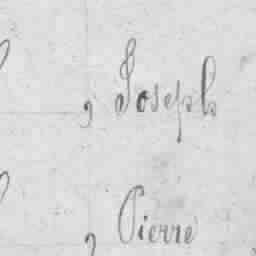 , Joseph
, Pierre